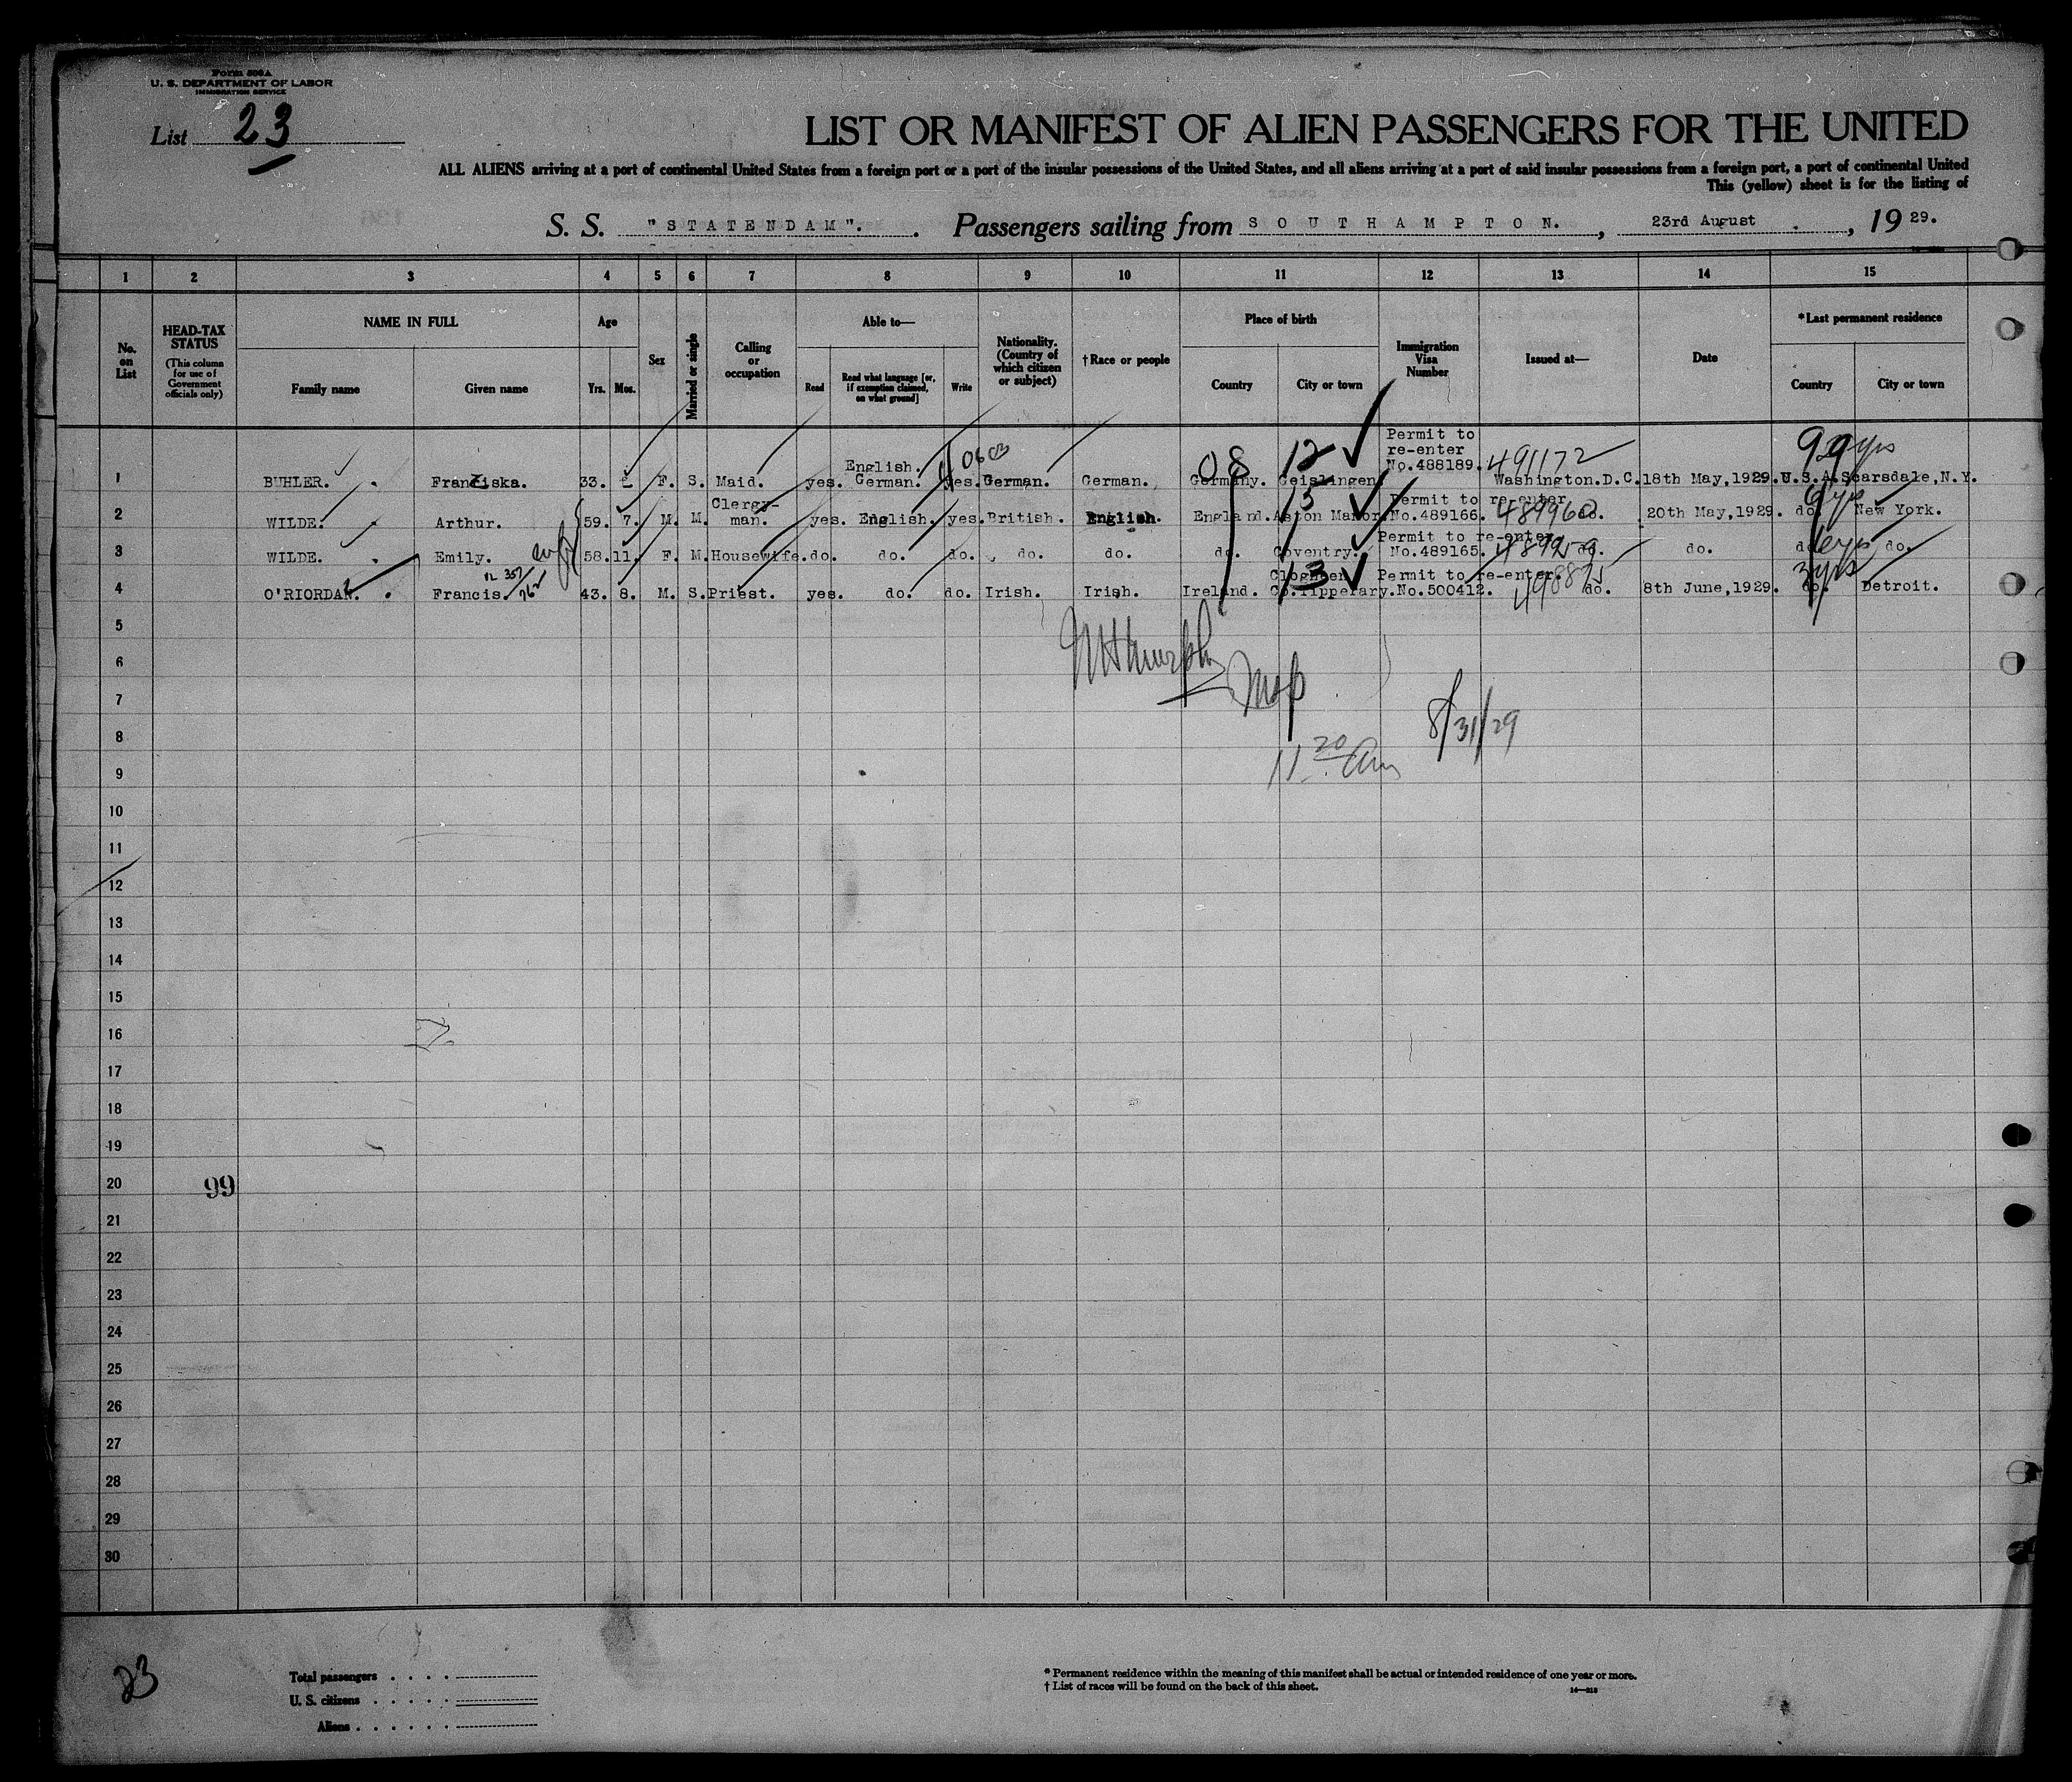 Form 500A
U. S. DEPARTMENT OF LABOR
IMMIGRATION SERVICE
List 23
LIST OR MANIFEST OF ALIEN PASSENGERS FOR THE UNITED
ALL ALIENS arriving at a port of continental United States from a foreign port or a port of the insular possessions of the United States, and all aliens arriving at a port of said insular possessions from a foreign port, a port of continental United
This (yellow) sheet is for the listing of
S. S. "STATENDAM". Passengers sailing from SOUTHAMPTON. , 23rd August , 19 29.
1 2 3 4 5 6 7 8 9 10 11 12 13 14 15
No. on List
HEAD-TAX STATUS
(This column for use of Government officials only)
NAME IN FULL
Family name Given name
Age
Yrs. Mos.
Sex
Married or single
Calling or occupation
Able to—
Read
Read what language [or, if exemption claimed, on what ground]
Write
Nationality. (Country of which citizen or subject)
† Race or people
Place of birth
Country City or town
Immigration Visa Number
Issued at—
Date
*Last permanent residence
Country City or town
1 BUHLER. Franziska. 33. F. S. Maid. yes. English. German. yes. German. German. Germany. Geislingen. Permit to re-enter No.488189. 491172 Washington.D.C. 18th May,1929. U.S.A. Scarsdale,N.Y.
2 WILDE. Arthur. 59. 7. M. M. Clergy-man. yes. English. yes. British. English. England. Aston Manor. Permit to re-enter No.489166. 489960 do. 20th May,1929. do. New York.
3 WILDE. Emily. 58. 11. F. M. Housewife. do. do. do. do. do. do. Coventry. Permit to re-enter No.489165. 489959 do. do. do. do.
4 O'RIORDAN. Francis. 43. 8. M. S. Priest. yes. do. do. Irish. Irish. Ireland. Clogheen Co.Tipperary. Permit to re-enter. No.500412. do. 8th June,1929. do. Detroit.
08 12
15
13
5
6
7
8
8/31/29
11 20 am
9
10
11
12
13
14
15
16
17
18
19
20
99
21
22
23
24
25
26
27
28
29
30
23
Total passengers . . . .
U. S. citizens . . . . .
Aliens . . . . . .
* Permanent residence within the meaning of this manifest shall be actual or intended residence of one year or more.
† List of races will be found on the back of this sheet.